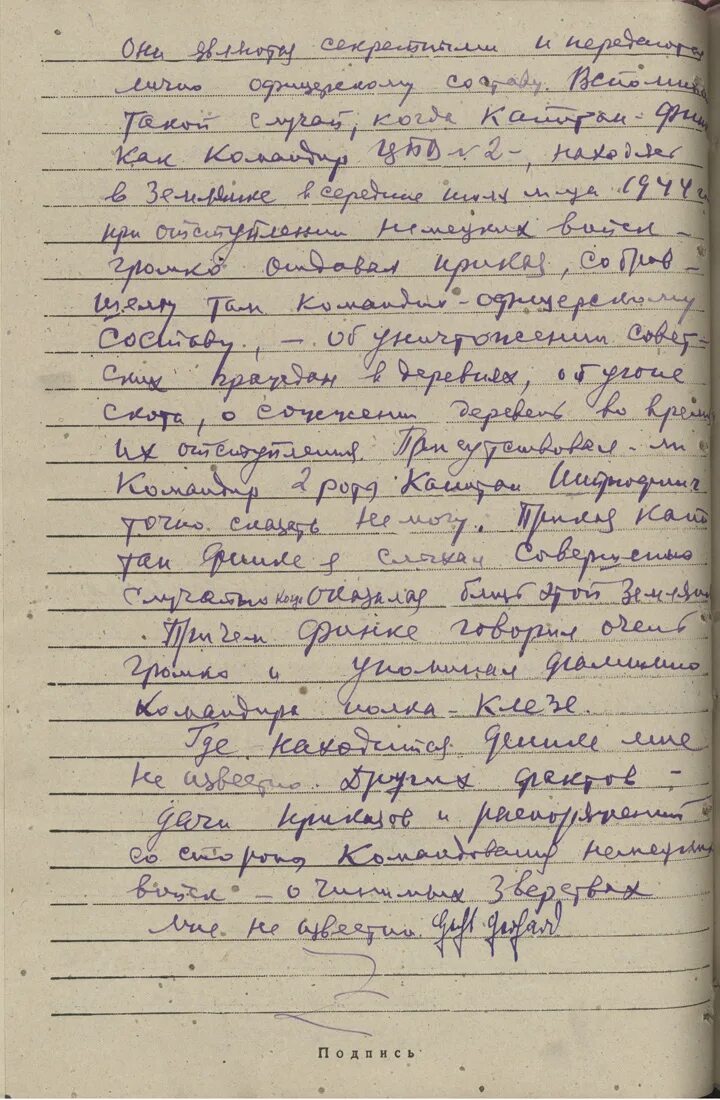 Они являются секретными и передаются
лично офицерскому составу. Вспомина
такой случай, когда Капитан - Фин
как командир находясь
в Землянке в середине июля м-ца 1944 г
при отступлении немецких войск -
громко отдавал приказ, собрав-
шему там командно-офицерскому
составу, - об уничтожении совет-
ских граждан в деревнях, об угоне
скота, о сожжении деревень во время
их отступления. Присутствовал-ли
Командир 2 роты Капитан
точно сказать не могу. Приказ Капи
тан Финке я слыхал совершенно
случайно когда оказался близь этой Землян
Причем Финке говорил очень
громко и упоминал фамилию
командира полка - Клезе.
Где находится Финке мне
не известно. Других фактов -
дачи приказов и распоряжений
со стороны Командования немецких
войск - о чинимых Зверствах
мне не известно Gerhard
Подпись